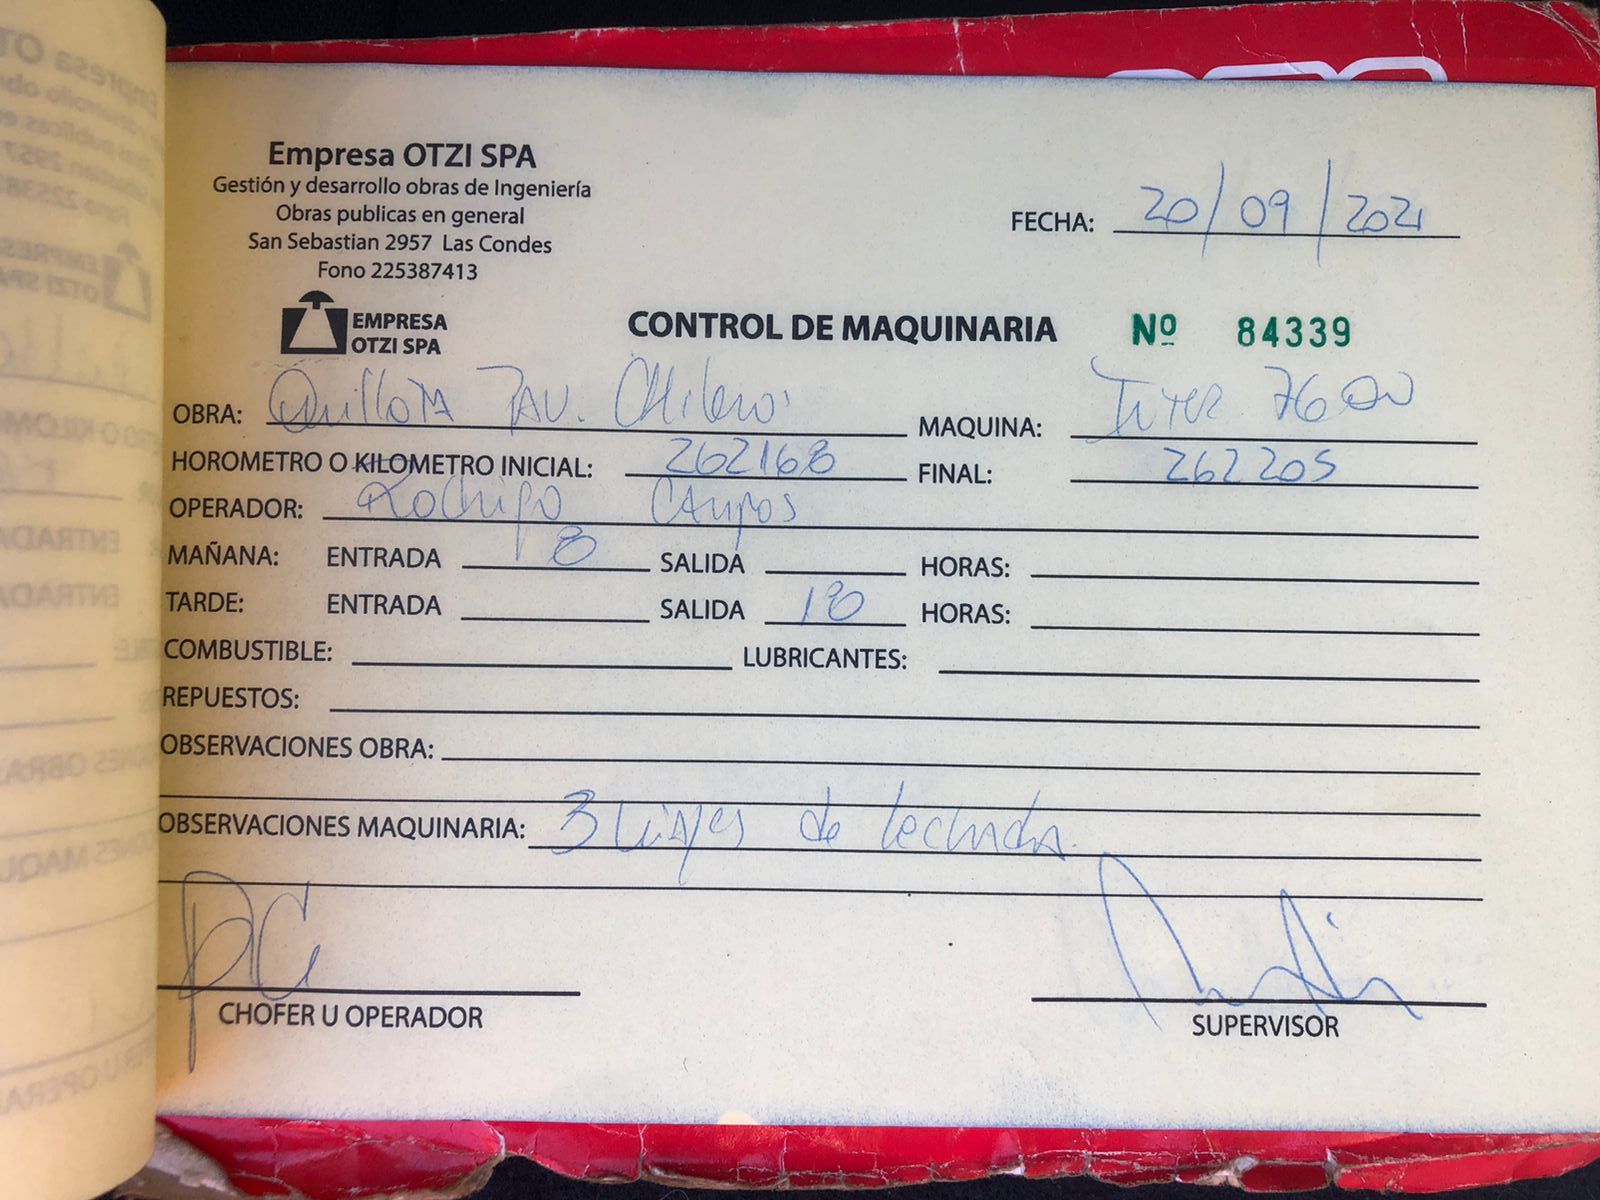 Empresa OTZI SPA
Gestión y desarrollo obras de Ingeniería
Obras publicas en general
San Sebastian 2957 Las Condes
Fono 225387413
FECHA: 20/09/2021
EMPRESA
OTZI SPA
CONTROL DE MAQUINARIA Nº 84339
OBRA: Quillota PAV. Chilenos MAQUINA: Inter 7600
HOROMETRO O KILOMETRO INICIAL: 262168 FINAL: 262205
OPERADOR: Rodrigo Campos
MAÑANA: ENTRADA 8 SALIDA HORAS:
TARDE: ENTRADA SALIDA 18 HORAS:
COMBUSTIBLE: LUBRICANTES:
REPUESTOS:
OBSERVACIONES OBRA:
OBSERVACIONES MAQUINARIA: 3 viajes de lechada.
RC
CHOFER U OPERADOR
SUPERVISOR